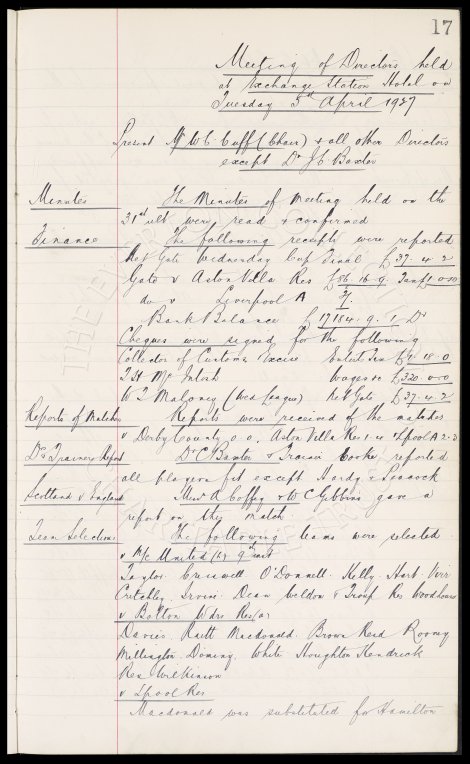 17
Meeting of Directors held
at Exchange Station Hotel on
Tuesday 5th April 1927
Present Mr W C Cuff (Chair) & all other Directors
except Dr J C Baxter
Minutes The Minutes of Meeting held on the
31st ult were read & confirmed
Finance The following receipts were reported
Net Gate Wednesday Cup Final £37. 4. 2
Gate v Aston Villa Res £56. 16. 9.
do v Liverpool A
Bank Balance £17184. 9. 1 Dr
Cheques were signed for the following
Collector of Customs & Excise
T H McIntosh Wages &c £320. 0. 0
W J Maloney (Wed League) Net Gate £37. 4. 2
Reports of Matches Reports were received of the matches
v Derby County 0. 0. Aston Villa Res 1. 4 L'pool A 2. 3
Drs Trainers Report Dr C Baxter & Trainer Cooke reported
all players fit except Hardy & Peacock
Scotland v England Messrs A Coffey & W C Gibbins gave a
report on this match
Team Selections The following teams were selected
v M/c United (h) 9th inst
Taylor Cresswell O'Donnell Kelly Hart Virr
Critchley Irvine Dean Weldon & Troup Res Woodhouse
v Bolton Wdrs Res (a)
Davies Raitt Macdonald Brown Reid Rooney
Millington Dominy White Houghton Kendrick
Res Wilkinson
v L'pool Res
Macdonald was substituted for Hamilton